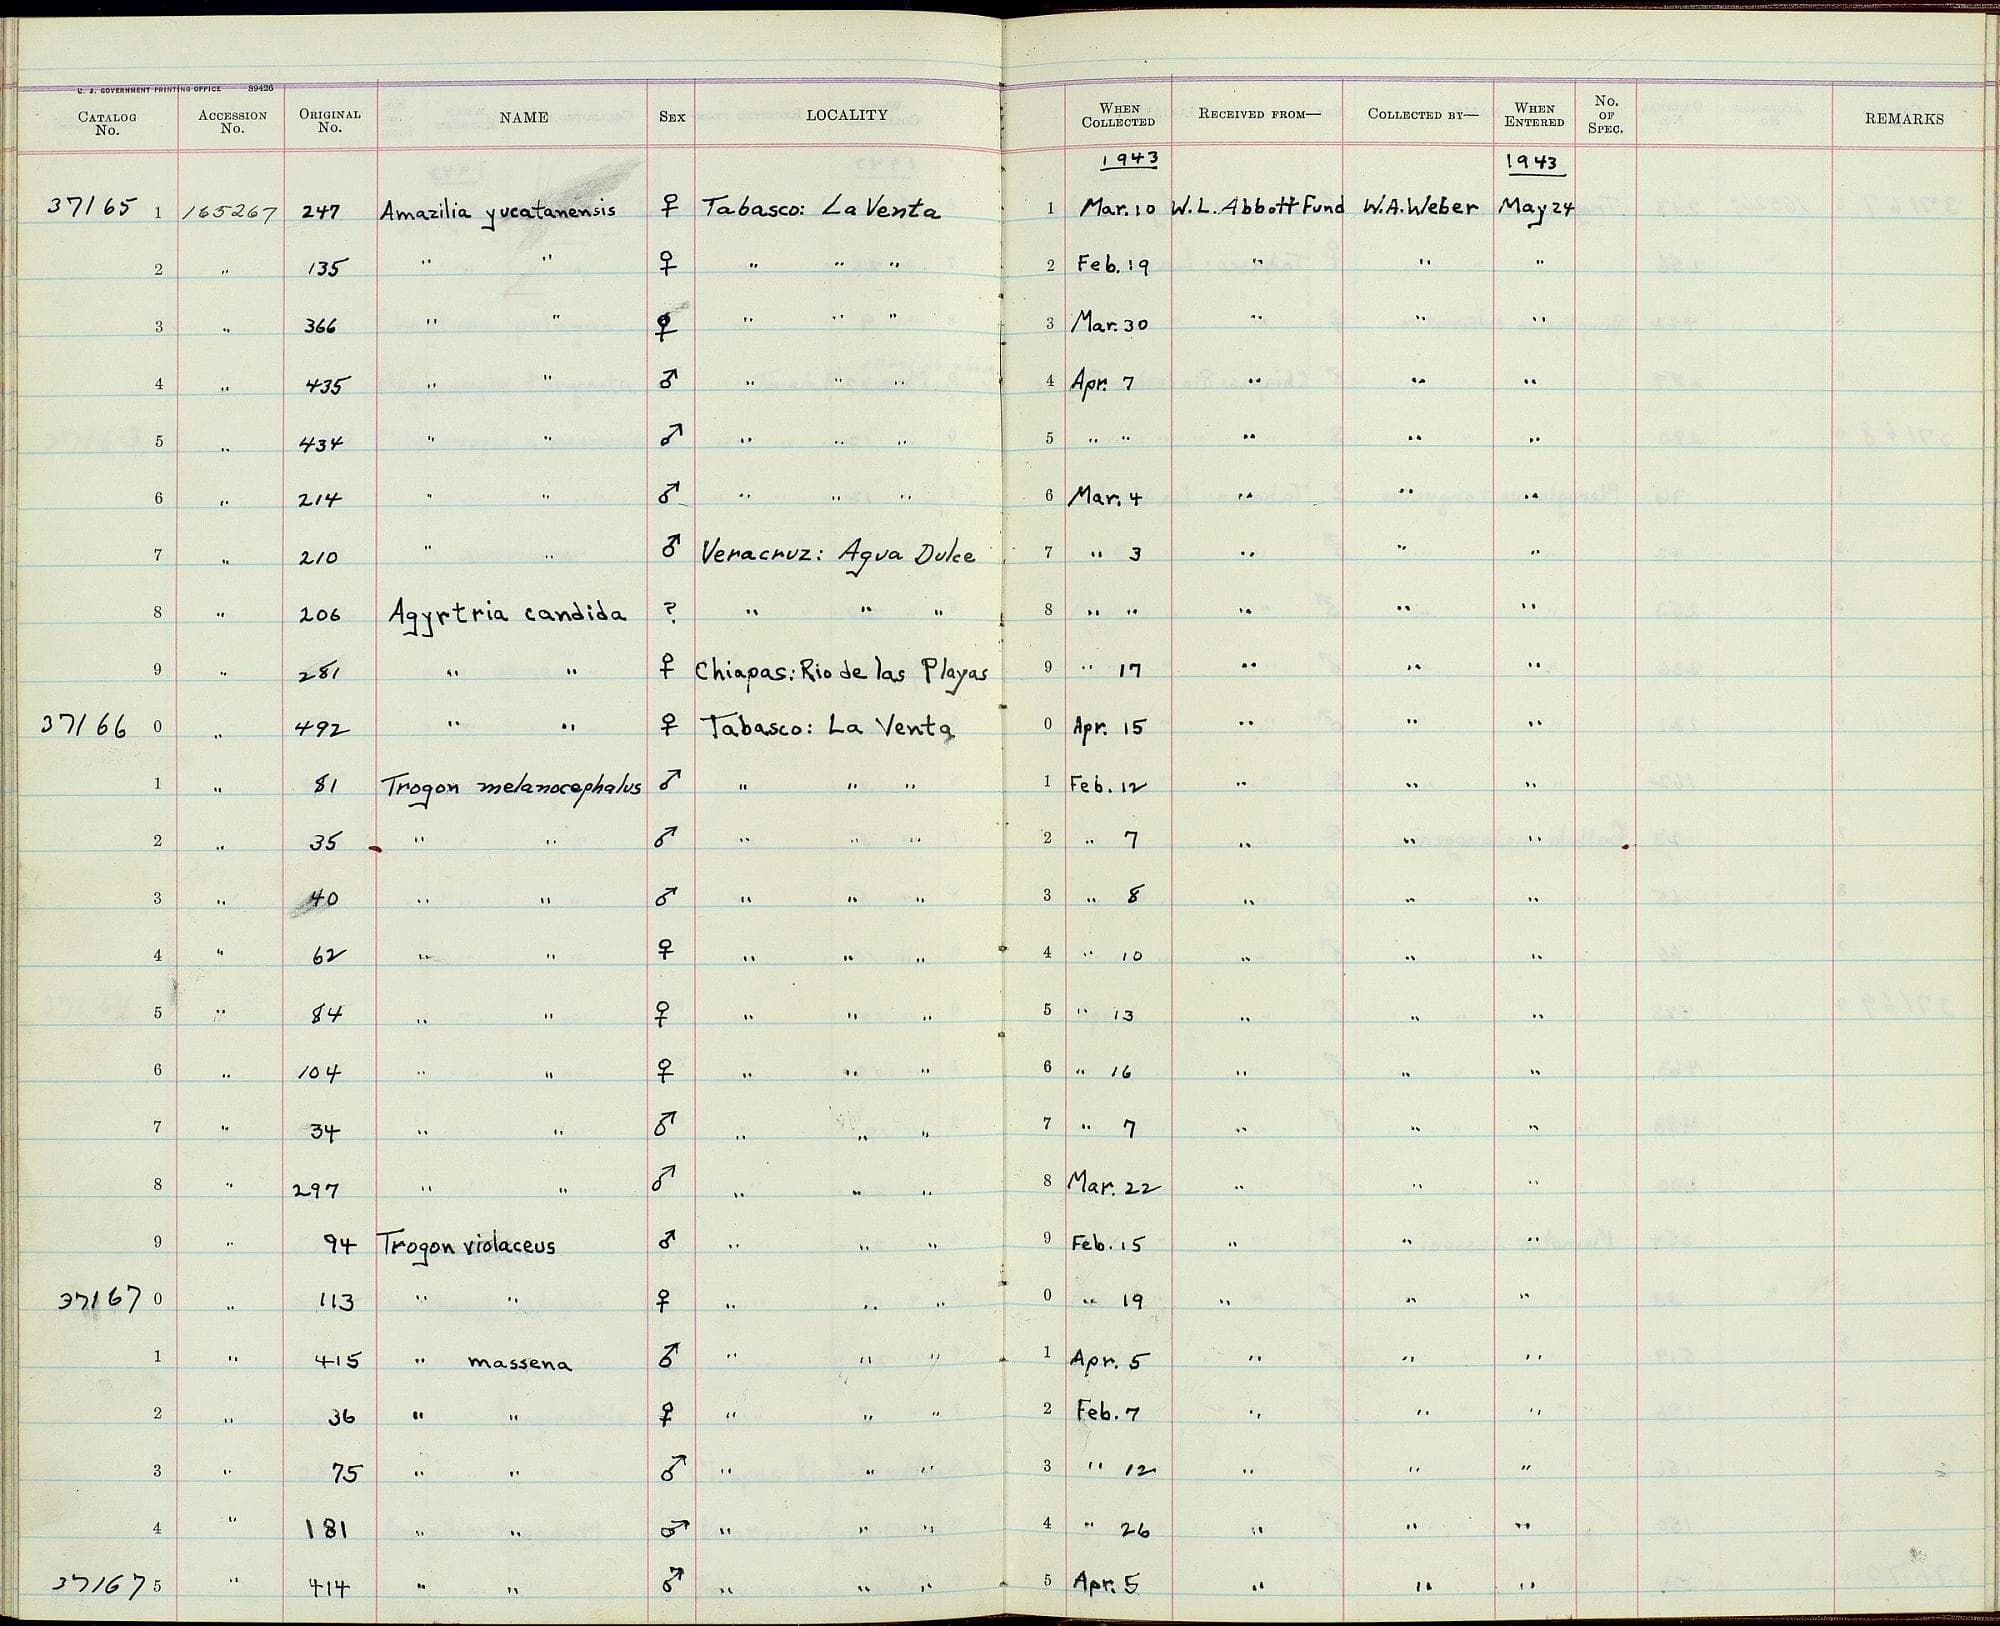 U. S. GOVERNMENT PRINTING OFFICE 89426
CATALOG No. ACCESSION No. ORIGINAL No. NAME SEX LOCALITY WHEN COLLECTED RECEIVED FROM— COLLECTED BY— WHEN ENTERED No. OF SPEC. REMARKS
1943 1943
37165 1 165267 247 Amazilia yucatanensis ♀ Tabasco: La Venta 1 Mar. 10 W. L. Abbott Fund W. A. Weber May 24
2 " 135 " " ♀ " " " 2 Feb. 19 " " "
3 " 366 " " ♀ " " " 3 Mar. 30 " " "
4 " 435 " " ♂ " " " 4 Apr. 7 " " "
5 " 434 " " ♂ " " " 5 " " " " "
6 " 214 " " ♂ " " " 6 Mar. 4 " " "
7 " 210 " " ♂ Veracruz: Agua Dulce 7 " 3 " " "
8 " 206 Agyrtria candida ? " " " 8 " " " " "
9 " 281 " " ♀ Chiapas: Rio de las Playas 9 " 17 " " "
37166 0 " 492 " " ♀ Tabasco: La Venta 0 Apr. 15 " " "
1 " 81 Trogon melanocephalus ♂ " " " 1 Feb. 12 " " "
2 " 35 " " ♂ " " " 2 " 7 " " "
3 " 40 " " ♂ " " " 3 " 8 " " "
4 " 62 " " ♀ " " " 4 " 10 " " "
5 " 84 " " ♀ " " " 5 " 13 " " "
6 " 104 " " ♀ " " " 6 " 16 " " "
7 " 34 " " ♂ " " " 7 " 7 " " "
8 " 297 " " ♂ " " " 8 Mar. 22 " " "
9 " 94 Trogon violaceus ♂ " " " 9 Feb. 15 " " "
37167 0 " 113 " " ♀ " " " 0 " 19 " " "
1 " 415 " massena ♂ " " " 1 Apr. 5 " " "
2 " 36 " " ♀ " " " 2 Feb. 7 " " "
3 " 75 " " ♂ " " " 3 " 12 " " "
4 " 181 " " ♂ " " " 4 " 26 " " "
37167 5 " 414 " " ♂ " " " 5 Apr. 5 " " "